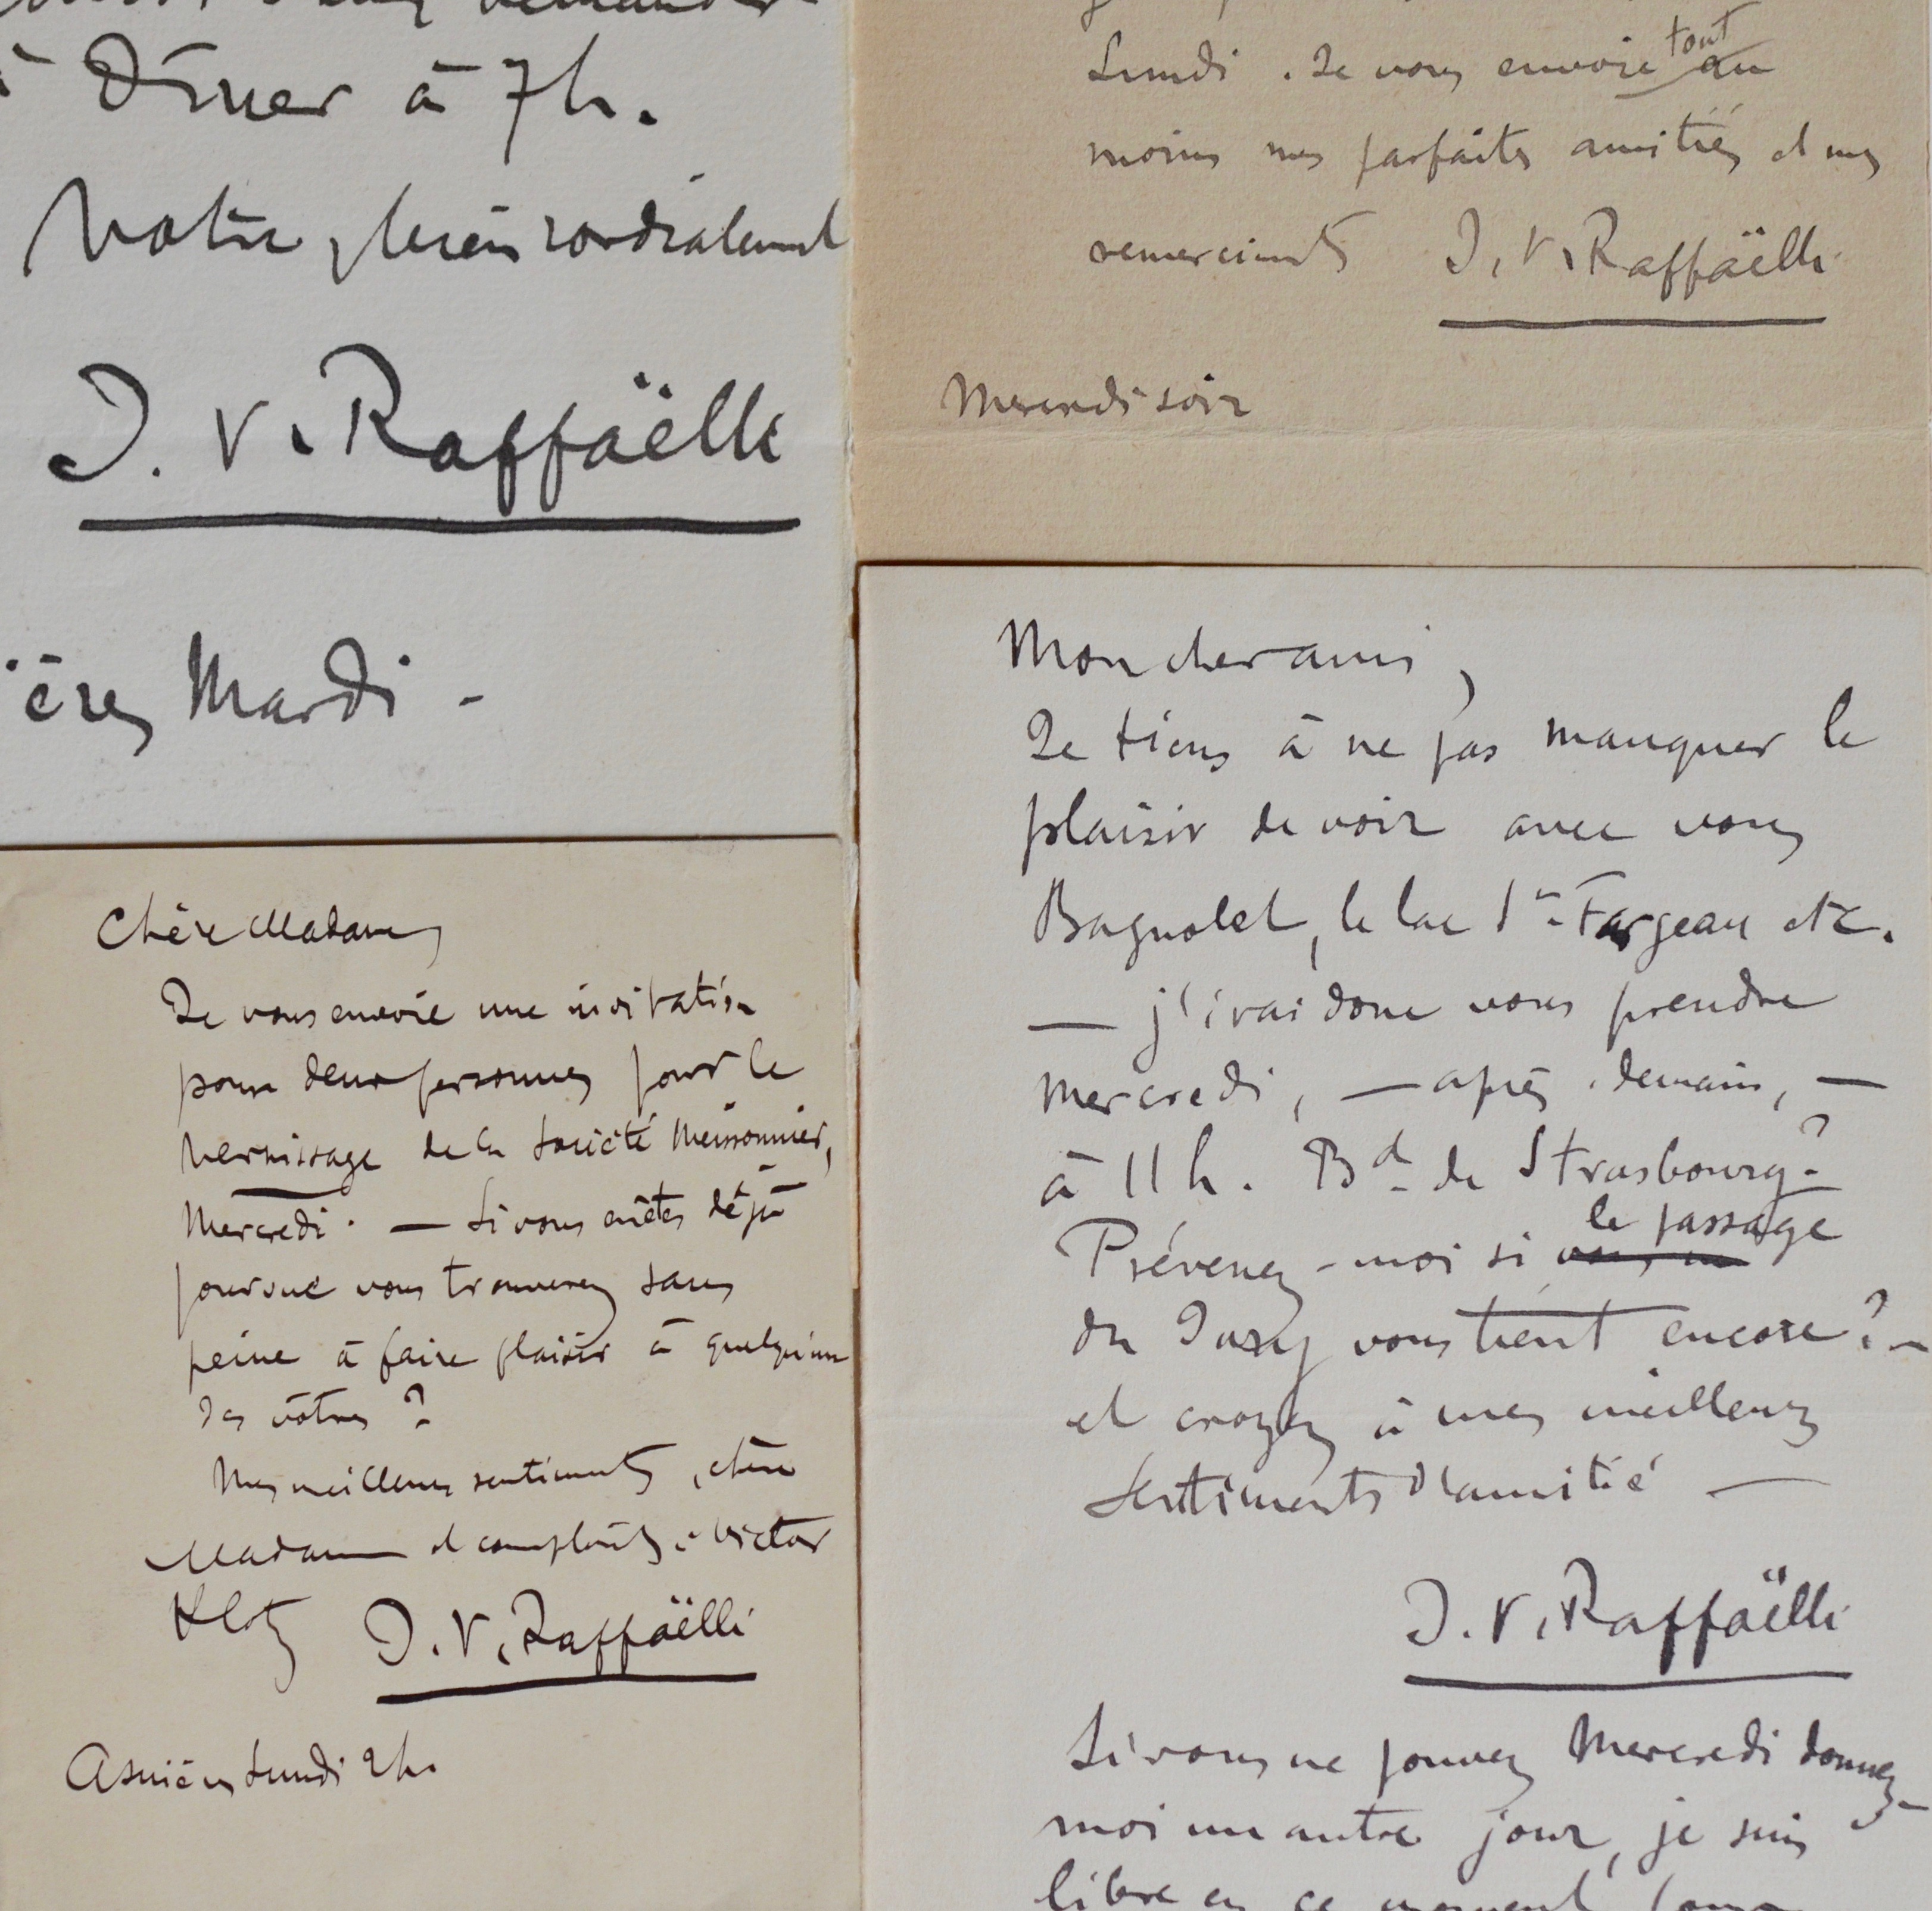 à Dîner à 7h.
Votre bien cordialement
J. V. Raffaëlli
ères Mardi -
Lundi. Je vous envoie tout au
moins mes parfaites amitiés et mes
remerciments J. V. Raffaëlli
Mercredi soir
Chère Madame,
Je vous envoie une invitation
pour deux personnes pour le
vernissage de la Société Meissonnier,
Mercredi. — Si vous en êtes déjà
pourvue vous trouverez sans
peine à faire plaisir à quelqu'un
des vôtres ?
Mes meilleurs sentiments, chère
Madame et compliments à Victor
Klotz J. V. Raffaëlli
Asnières Lundi 2h.
Mon cher ami,
Je tiens à ne pas manquer le
plaisir de voir avec vous
Bagnolet, le lac St Fargeau etc.
— j'irai donc vous prendre
Mercredi, — après demain, —
à 11 h. Bd de Strasbourg ?
le passage
Prévenez-moi si
du Jury vous tient encore ? —
et croyez à mes meilleurs
sentiments d'amitié —
J. V. Raffaëlli
Si vous ne pouvez Mercredi donnez-
moi un autre jour, je suis
libre en ce moment